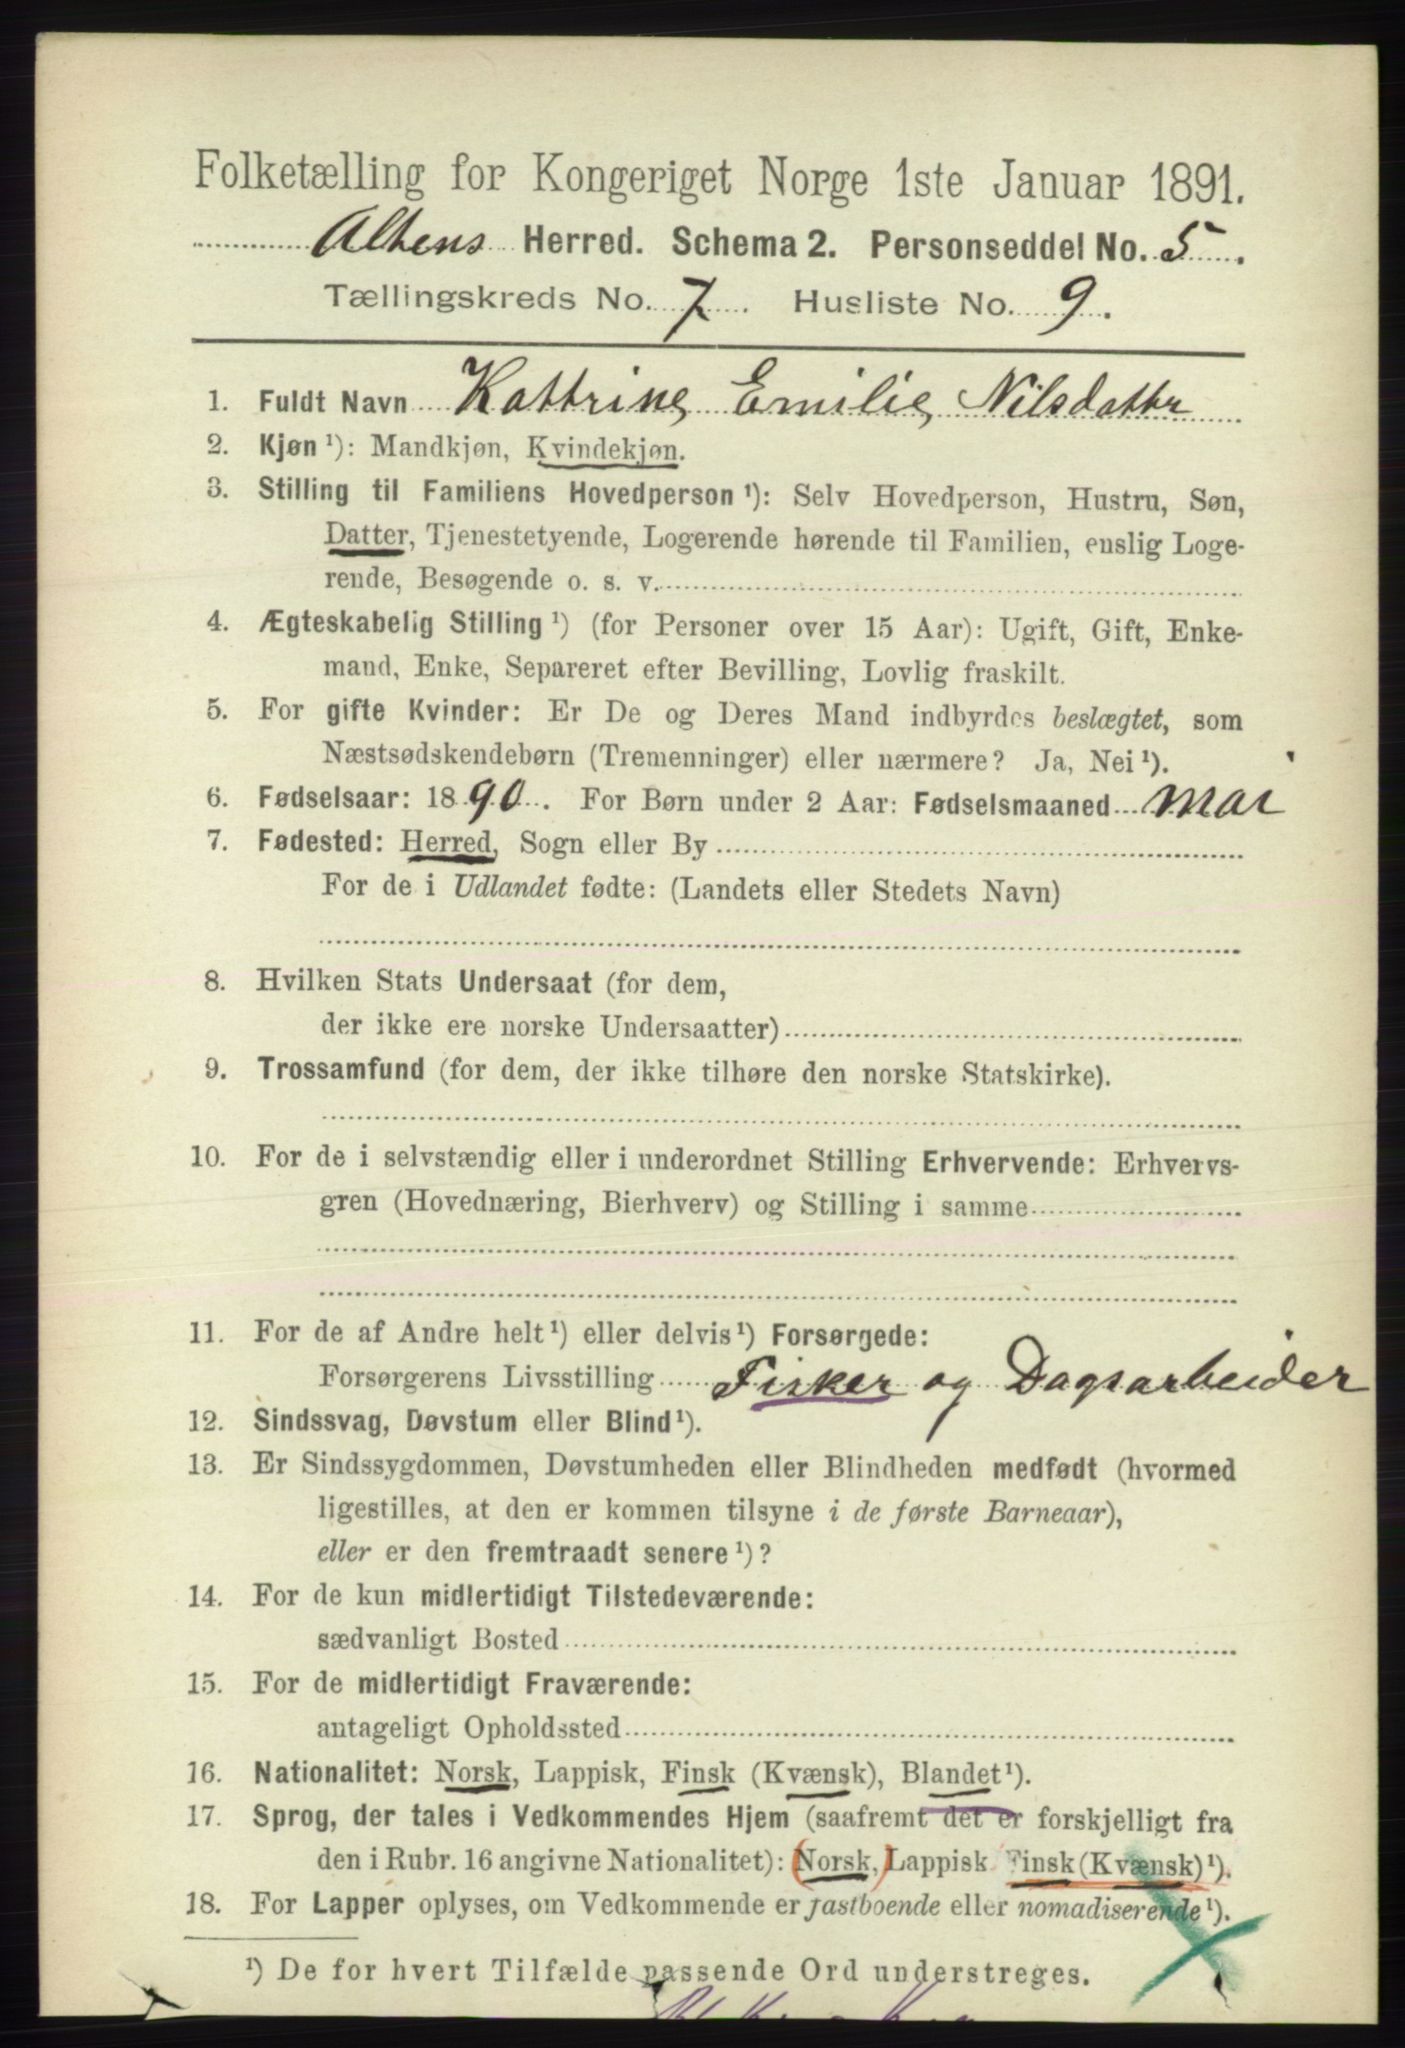 Folketælling for Kongeriget Norge 1ste Januar 1891.
Altens Herred. Schema 2. Personseddel No. 5.
Tællingskreds No. 7. Husliste No. 9.
1. Fuldt Navn Kattrine Emilie Nilsdatter
2. Kjøn ¹): Mandkjøn, Kvindekjøn.
3. Stilling til Familiens Hovedperson ¹): Selv Hovedperson, Hustru, Søn,
Datter, Tjenestetyende, Logerende hørende til Familien, enslig Loge-
rende, Besøgende o. s. v.
4. Ægteskabelig Stilling ¹) (for Personer over 15 Aar): Ugift, Gift, Enke-
mand, Enke, Separeret efter Bevilling, Lovlig fraskilt.
5. For gifte Kvinder: Er De og Deres Mand indbyrdes beslægtet, som
Næstsødskendebørn (Tremenninger) eller nærmere? Ja, Nei ¹).
6. Fødselsaar: 1890. For Børn under 2 Aar: Fødselsmaaned Mai
7. Fødested: Herred, Sogn eller By
For de i Udlandet fødte: (Landets eller Stedets Navn)
8. Hvilken Stats Undersaat (for dem,
der ikke ere norske Undersaatter)
9. Trossamfund (for dem, der ikke tilhøre den norske Statskirke).
10. For de i selvstændig eller i underordnet Stilling Erhvervende: Erhvervs-
gren (Hovednæring, Bierhverv) og Stilling i samme
11. For de af Andre helt ¹) eller delvis ¹) Forsørgede:
Forsørgerens Livsstilling Fisker og Dagsarbeider
12. Sindssvag, Døvstum eller Blind ¹).
13. Er Sindssygdommen, Døvstumheden eller Blindheden medfødt (hvormed
ligestilles, at den er kommen tilsyne i de første Barneaar),
eller er den fremtraadt senere ¹)?
14. For de kun midlertidigt Tilstedeværende:
sædvanligt Bosted
15. For de midlertidigt Fraværende:
antageligt Opholdssted
16. Nationalitet: Norsk, Lappisk, Finsk (Kvænsk), Blandet ¹).
17. Sprog, der tales i Vedkommendes Hjem (saafremt det er forskjelligt fra
den i Rubr. 16 angivne Nationalitet): (Norsk,) Lappisk Finsk (Kvænsk) ¹).
18. For Lapper oplyses, om Vedkommende er fastboende eller nomadiserende ¹).
¹) De for hvert Tilfælde passende Ord understreges.